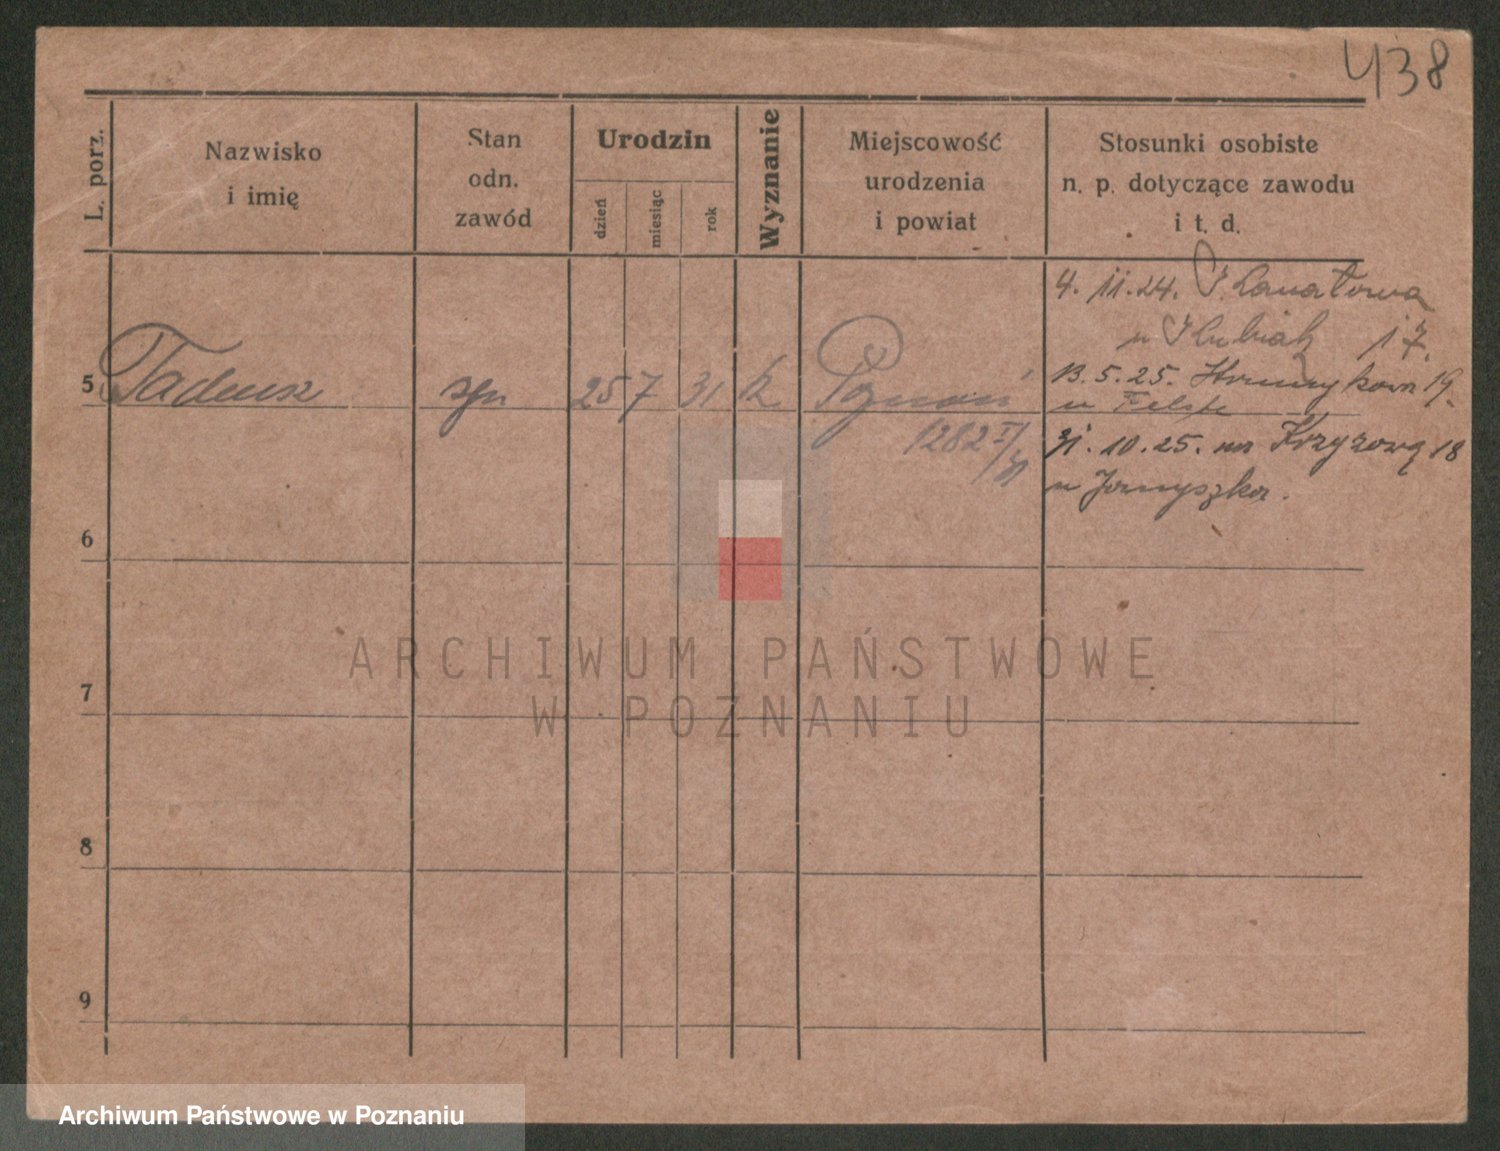 438
L. porz.
Nazwisko
i imię
Stan
odn.
zawód
Urodzin
dzień
miesiąc
rok
Wyznanie
Miejscowość
urodzenia
i powiat
Stosunki osobiste
n. p. dotyczące zawodu
i t. d.
4. 11. 24.
u 17.
5 Tadeusz syn 25 7 31 k Poznań
13. 5. 25. 19.
u
1282 I/31
31. 10. 25. na Krzyżową 18
u Januszka.
6
7
8
9
ARCHIWUM PAŃSTWOWE
W POZNANIU
Archiwum Państwowe w Poznaniu